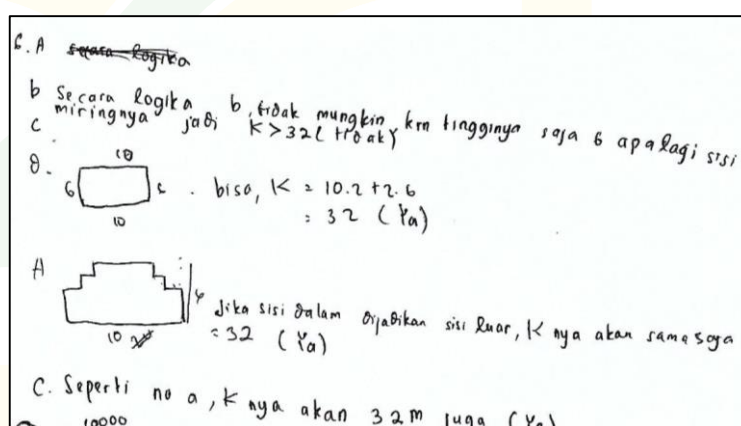 6. A ~~secara logika~~
b Secara logika b, tidak mungkin krn tingginya saja 6 apalagi sisi
miringnya jadi K > 32 (tidak)
C
D.
10
6 6 . bisa, K = 10.2 + 2.6
10 = 32 (Ya)
A
6 Jika sisi dalam dijadikan sisi luar, K nya akan sama saja
10 = 32 (Ya)
C. Seperti no a, K nya akan 32m juga (Ya)
10000